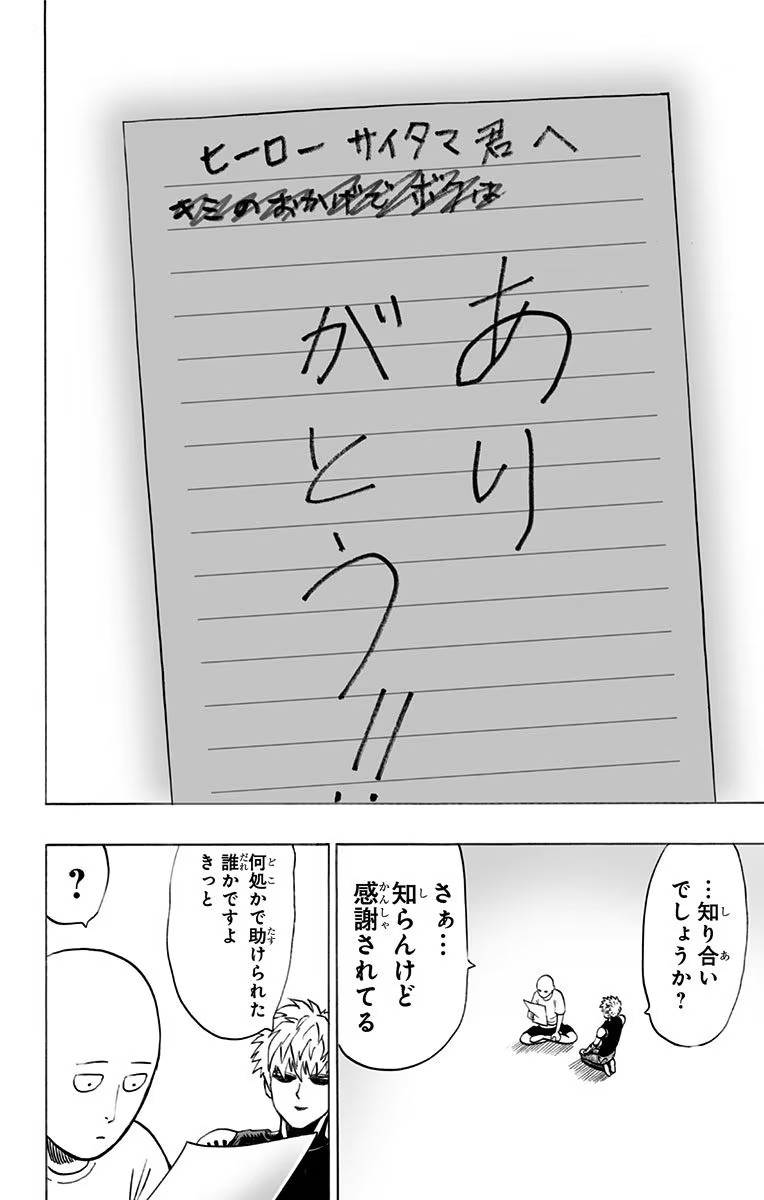 ヒーロー サイタマ君へ
キミのおかげでボクは
あり
がとう!!
…知り合い
でしょうか?
さぁ…
知らんけど
感謝されてる
何処かで助けられた
誰かですよ
きっと
?